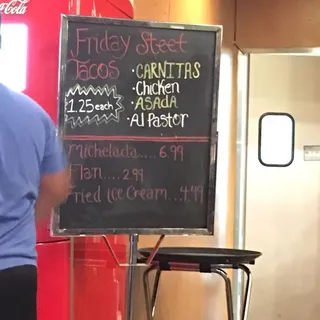 Coca-Cola
Friday Street
Tacos
1.25 each
• CARNITAS
• Chicken
• ASADA
• Al Pastor
Michelada.... 6.99
Flan.... 2.99
Fried Ice Cream... 4.99